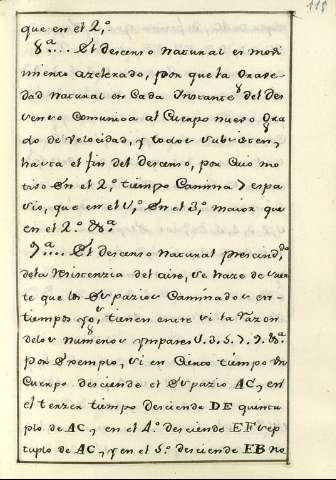 118
que en el 2.º
8.ª... El descenso natural es movi
miento azelerado, por que la Grave
dad natural en Cada Instante del des
censo Comunica al Cuerpo nuevo Gra
do de Velocidad, y todos subsisten,
hasta el fin del descenso, por cuio mo
tivo en el 2.º tiempo Camina > espa
zio, que en el 1.º en el 3.º maior que
en el 2.º &.ª
9.ª... El descenso natural prescind.do
dela Resistenzia del aire, se haze de sue
te que los Espazios Caminados en
tiempos y.os, tienen entre si la Razon
delos numeros ympares 1. 3. 5. 7. 9. &.ª
por Exemplo, si en Cierto tiempo Un
Cuerpo desciende el Espazio AC, en
el terzer tiempo desciende DE quintu
plo de AC, en el 4.º desciende EF sep
tuplo de AC, y en el 5.º desciende EB no